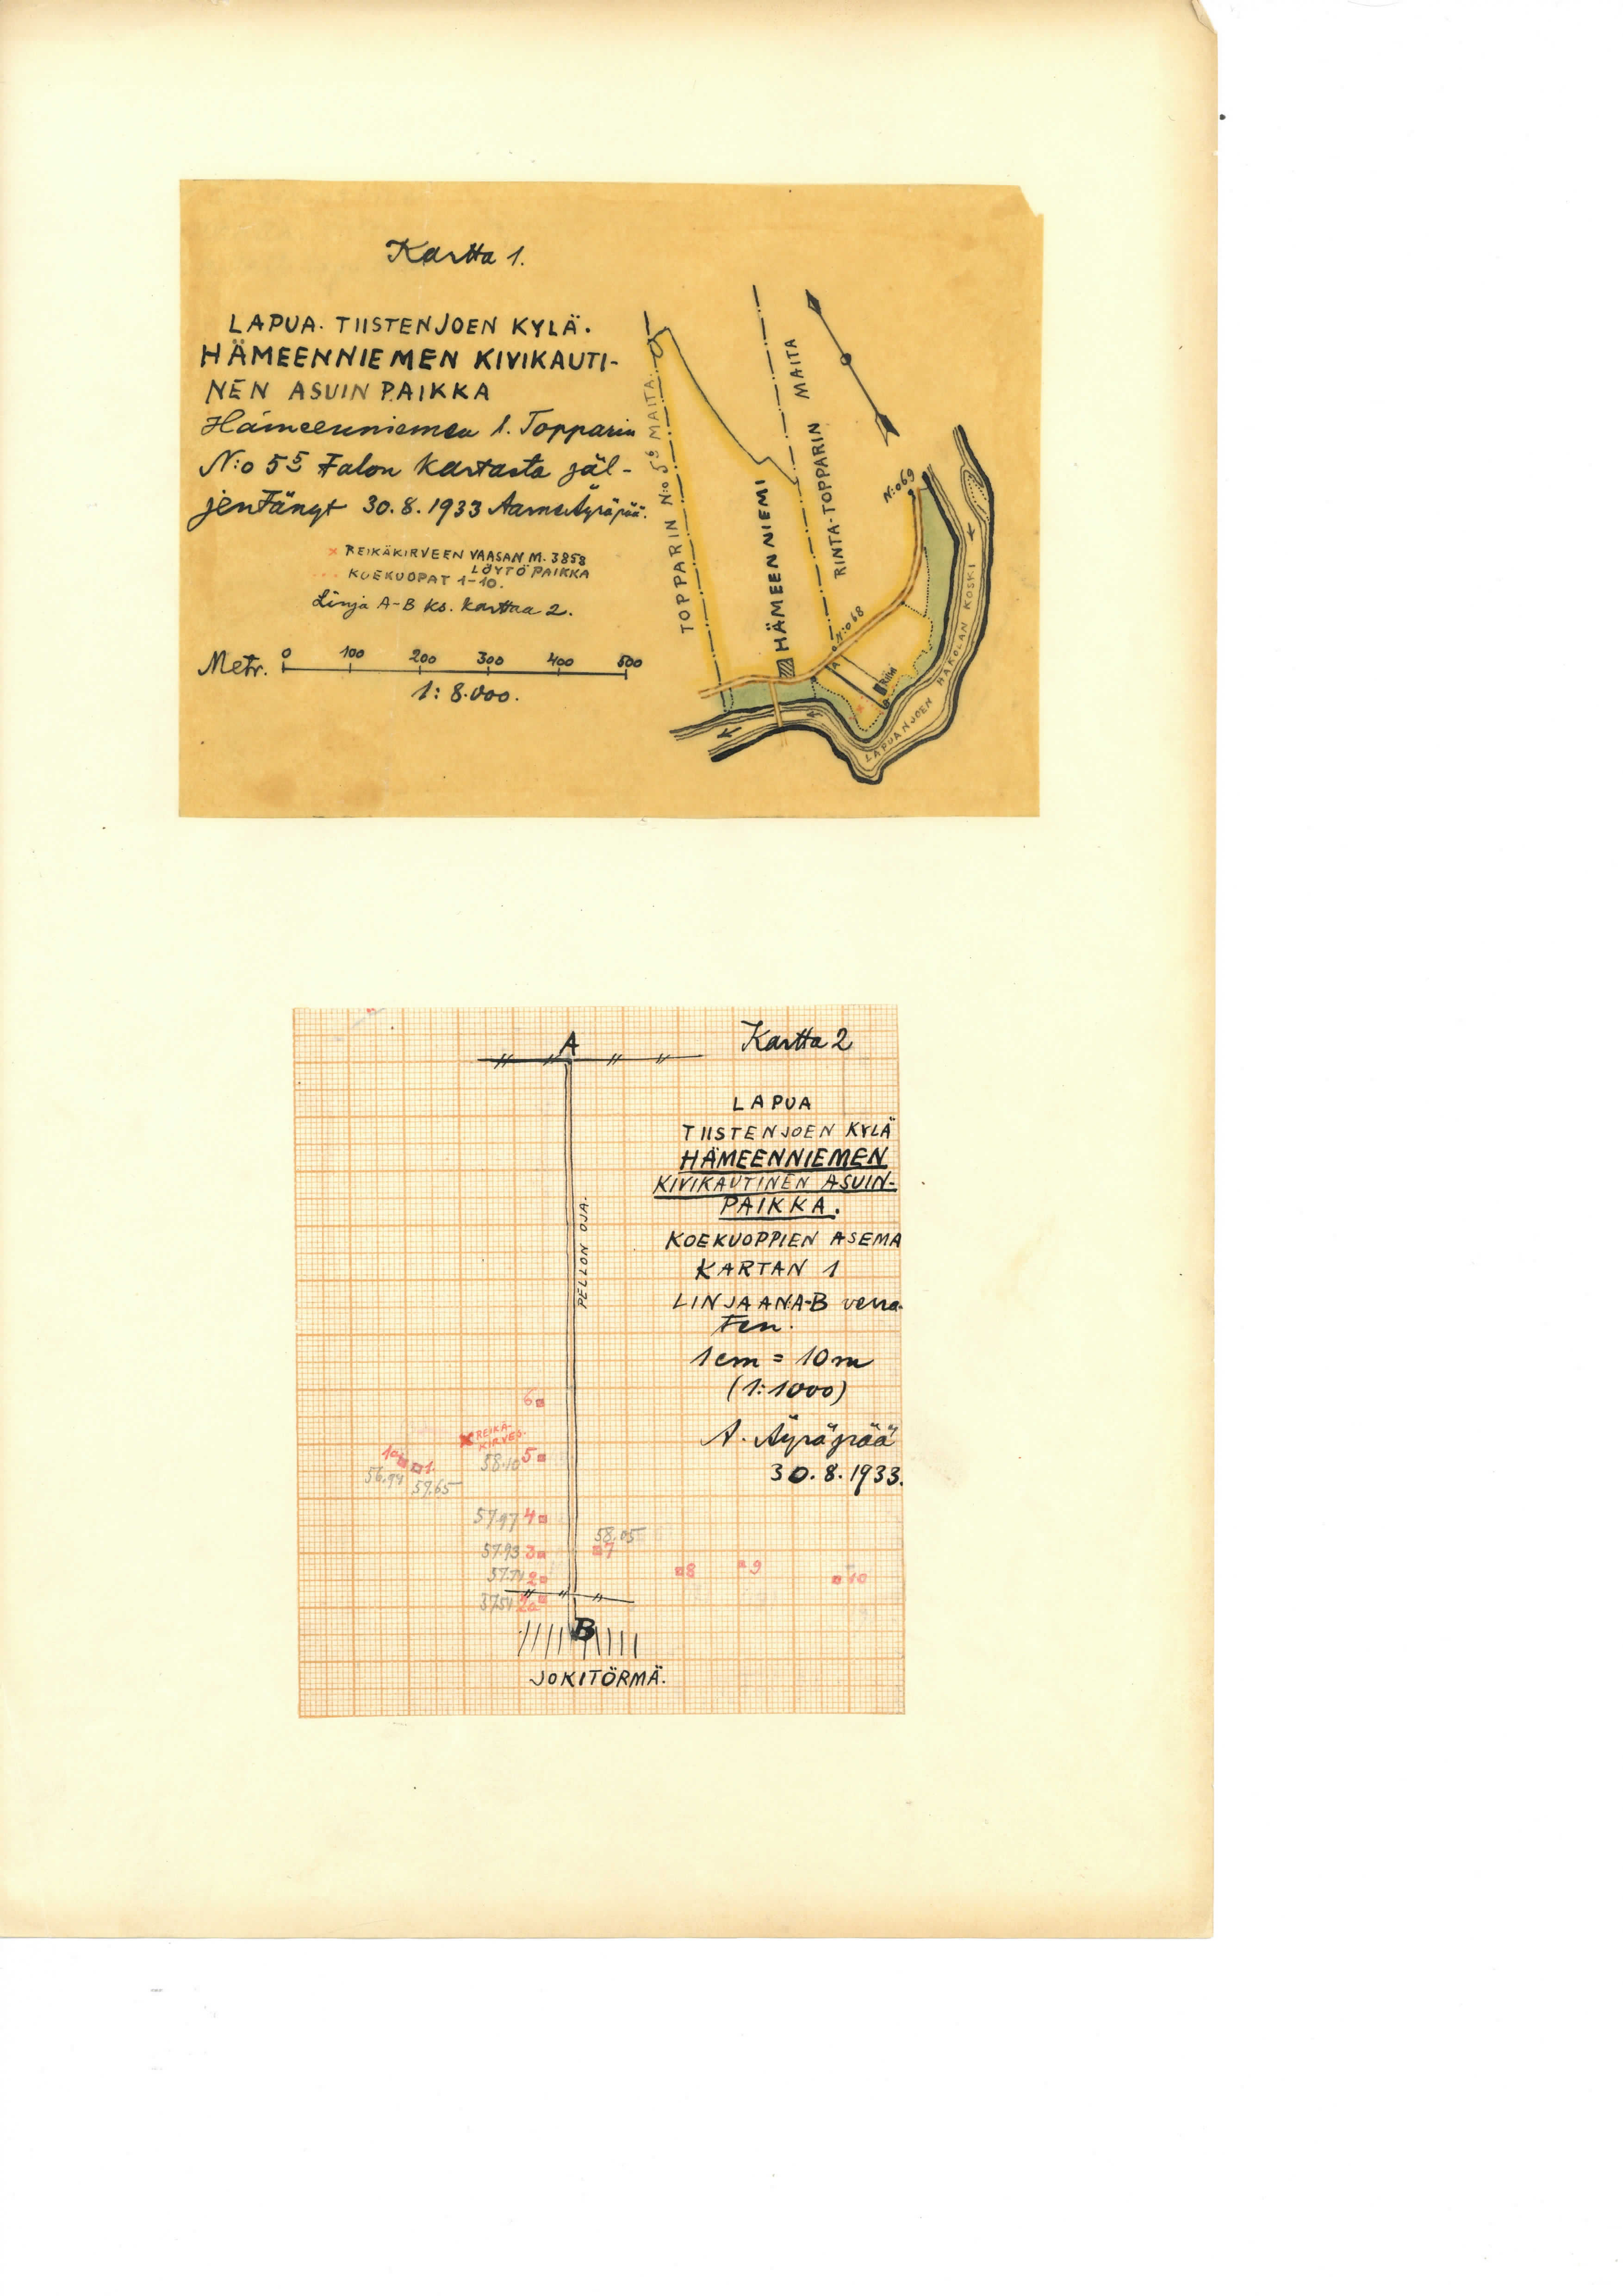 Kartta 1.
LAPUA. TIISTENJOEN KYLÄ.
HÄMEENNIEMEN KIVIKAUTI-
NEN ASUINPAIKKA
Hämeenniemen l. Topparin
N:o 5⁵ talon kartasta jäl-
jentänyt 30.8.1933 Aarne Äyräpää.
× REIKÄKIRVEEN VAASAN M. 3858
LÖYTÖPAIKKA
... KOEKUOPAT 1-10.
Linja A-B ks. karttaa 2.
Metr. 0 100 200 300 400 500
1:8.000.
TOPPARIN N:o 5⁶ MAITA.
HÄMEENNIEMI
RINTA-TOPPARIN MAITA
N:o 69
N:o 68
A
RIIHI
B
LAPUANJOEN HAKOLAN KOSKI
Kartta 2
A
LAPUA
TIISTENJOEN KYLÄ
HÄMEENNIEMEN
KIVIKAUTINEN ASUIN-
PAIKKA.
KOEKUOPPIEN ASEMA
KARTAN 1
LINJAAN A-B verra-
ten.
1cm = 10m
(1:1000)
A. Äyräpää
30.8.1933.
PELLON OJA.
6
REIKÄ-
KIRVES.
58.10 5
1a 1.
56.94 57.65
57.97 4
57.93 3
58.05
7
2
8
9
10
2a
B
JOKITÖRMÄ.